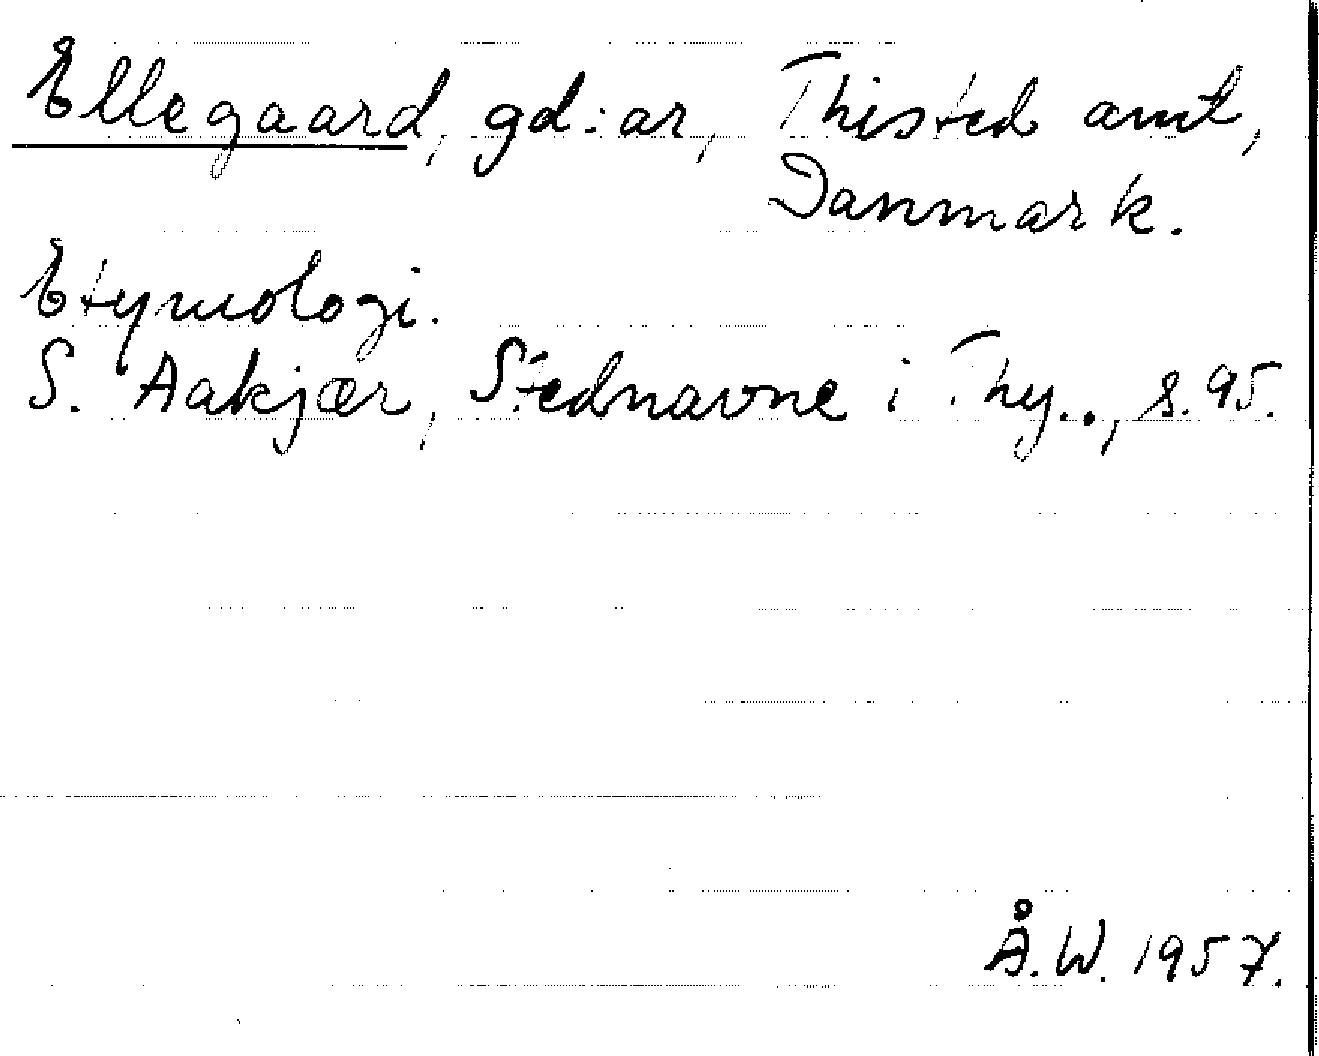 Ellegaard, gd:ar, Thisted amt,
Danmark.
Etymologi.
S. Aakjær, Stednavne i Thy.., s. 95.
Å.W. 1957.